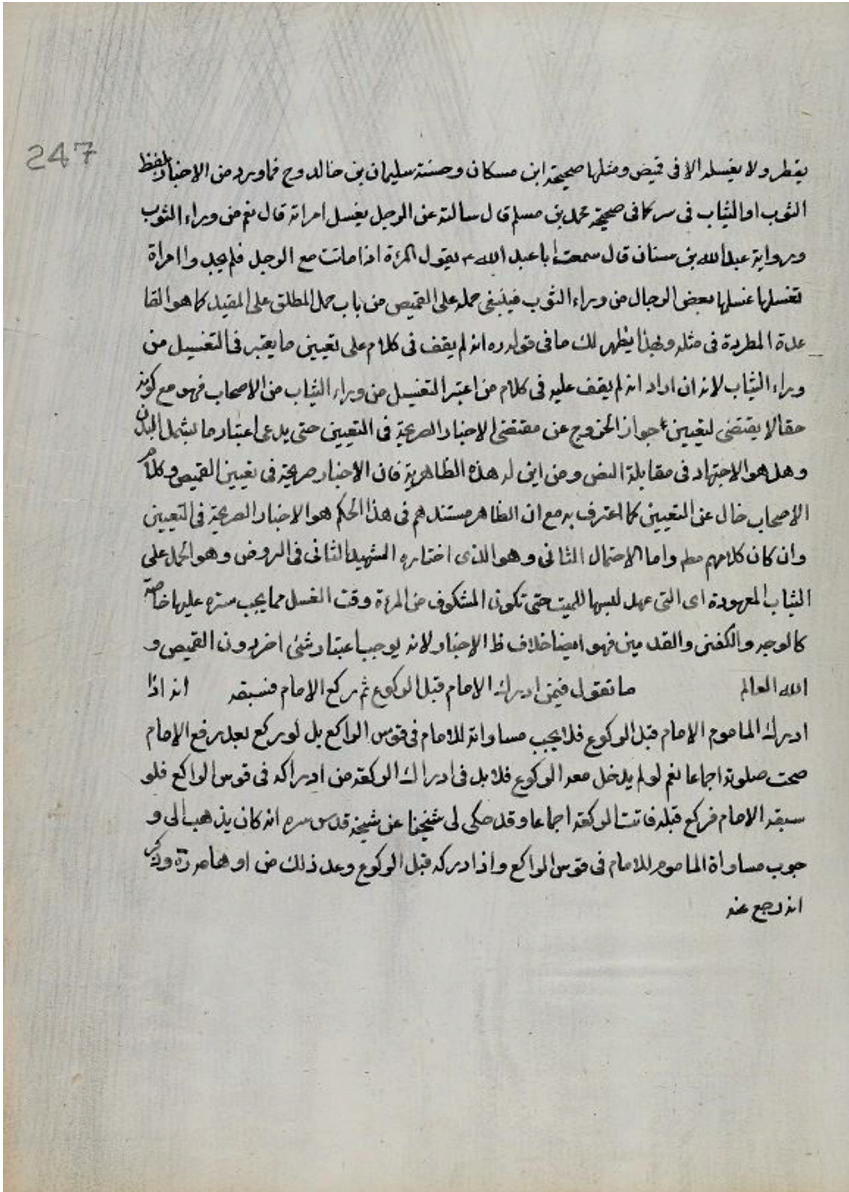 247
يقطر ولا يغسله الا فى قميص ومثلها صحيحة ابن مسكان وحسنة سليمان بن خالد وح فما ورد من الاخبار بلفظ
الثوب او الثياب فى كما فى صحيحة محمد بن مسلم قال سالته عن الرجل يغسل امراته قال نعم من وراء الثوب
ورواية عبد الله بن سنان قال سمعت ابا عبد الله ع يقول المرءة اذا ماتت مع الرجل فلم يجدوا امراة
تغسلها غسلها بعض الرجال من وراء الثوب فينبغى حمله على القميص من باب حمل المطلق على المقيد كما هو القا
عدة المطردة فى مثله وبهذا يظهر لك ما فى قوله ره انه لم يقف فى كلام على تعيين ما يعتبر فى التغسيل من
وراء الثياب لانه ان اراد انه لم يقف عليه فى كلام من اعتبر التغسيل من وراء الثياب من الاصحاب فهو مع كونه
حقا لا يقتضى جواز الخروج عن مقتضى الاخبار الصريحة فى التعيين حتى يدعى اعتبار ما يشمل البدن
وهل هو الاجتهاد فى مقابلة النص ومن اين له هذه الظاهرية فان الاخبار صريحة فى تعيين القميص وكلام
الاصحاب خال عن التعيين كما اعترف به مع ان الظاهر مستندهم فى هذا الحكم هو الاخبار الصريحة فى التعيين
وان كان كلامهم مطم واما الاحتمال الثانى وهو الذى اختاره الشهيد الثانى فى الروض وهو الحمل على
الثياب المعهودة اى التى عهد لبسها للميت حتى تكون المكشوف من المرءة وقت الغسل مما يجب ستره عليها خاصة
كالوجه والكفين والقدمين فهو ايضا خلاف ظ الاخبار ولانه يوجب اعتبار شئ اخر دون القميص و
الله العالم ما تقول فيمن ادرك الامام قبل الركوع ثم ركع الامام فسبقه انه اذا
ادرك الماموم الامام قبل الركوع فلا يجب مساواته للامام فى قوس الراكع بل لو ركع بعد رفع الامام
صحت صلوته اجماعا نعم لو لم يدخل معه الركوع فلا بد فى ادراك الركعة من ادراكه فى قوس الراكع فلو
سبقه الامام فركع قبله فاتت الركعة اجماعا وقد حكى لى شيخنا عن شيخه قدس سره انه كان يذهب الى و
جوب مساواة الماموم للامام فى قوس الراكع واذا دركه قبل الركوع وعد ذلك من اوهامه ره وذكر
انه رجع عنه